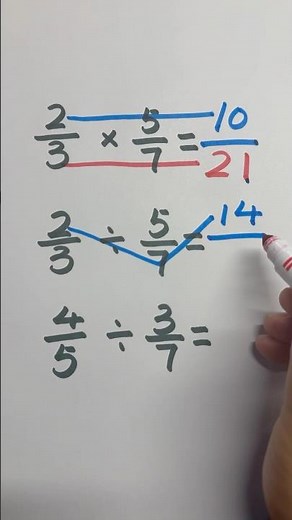 2/3 × 5/7 = 10/21
2/3 ÷ 5/7 = 14/
4/5 ÷ 3/7 =